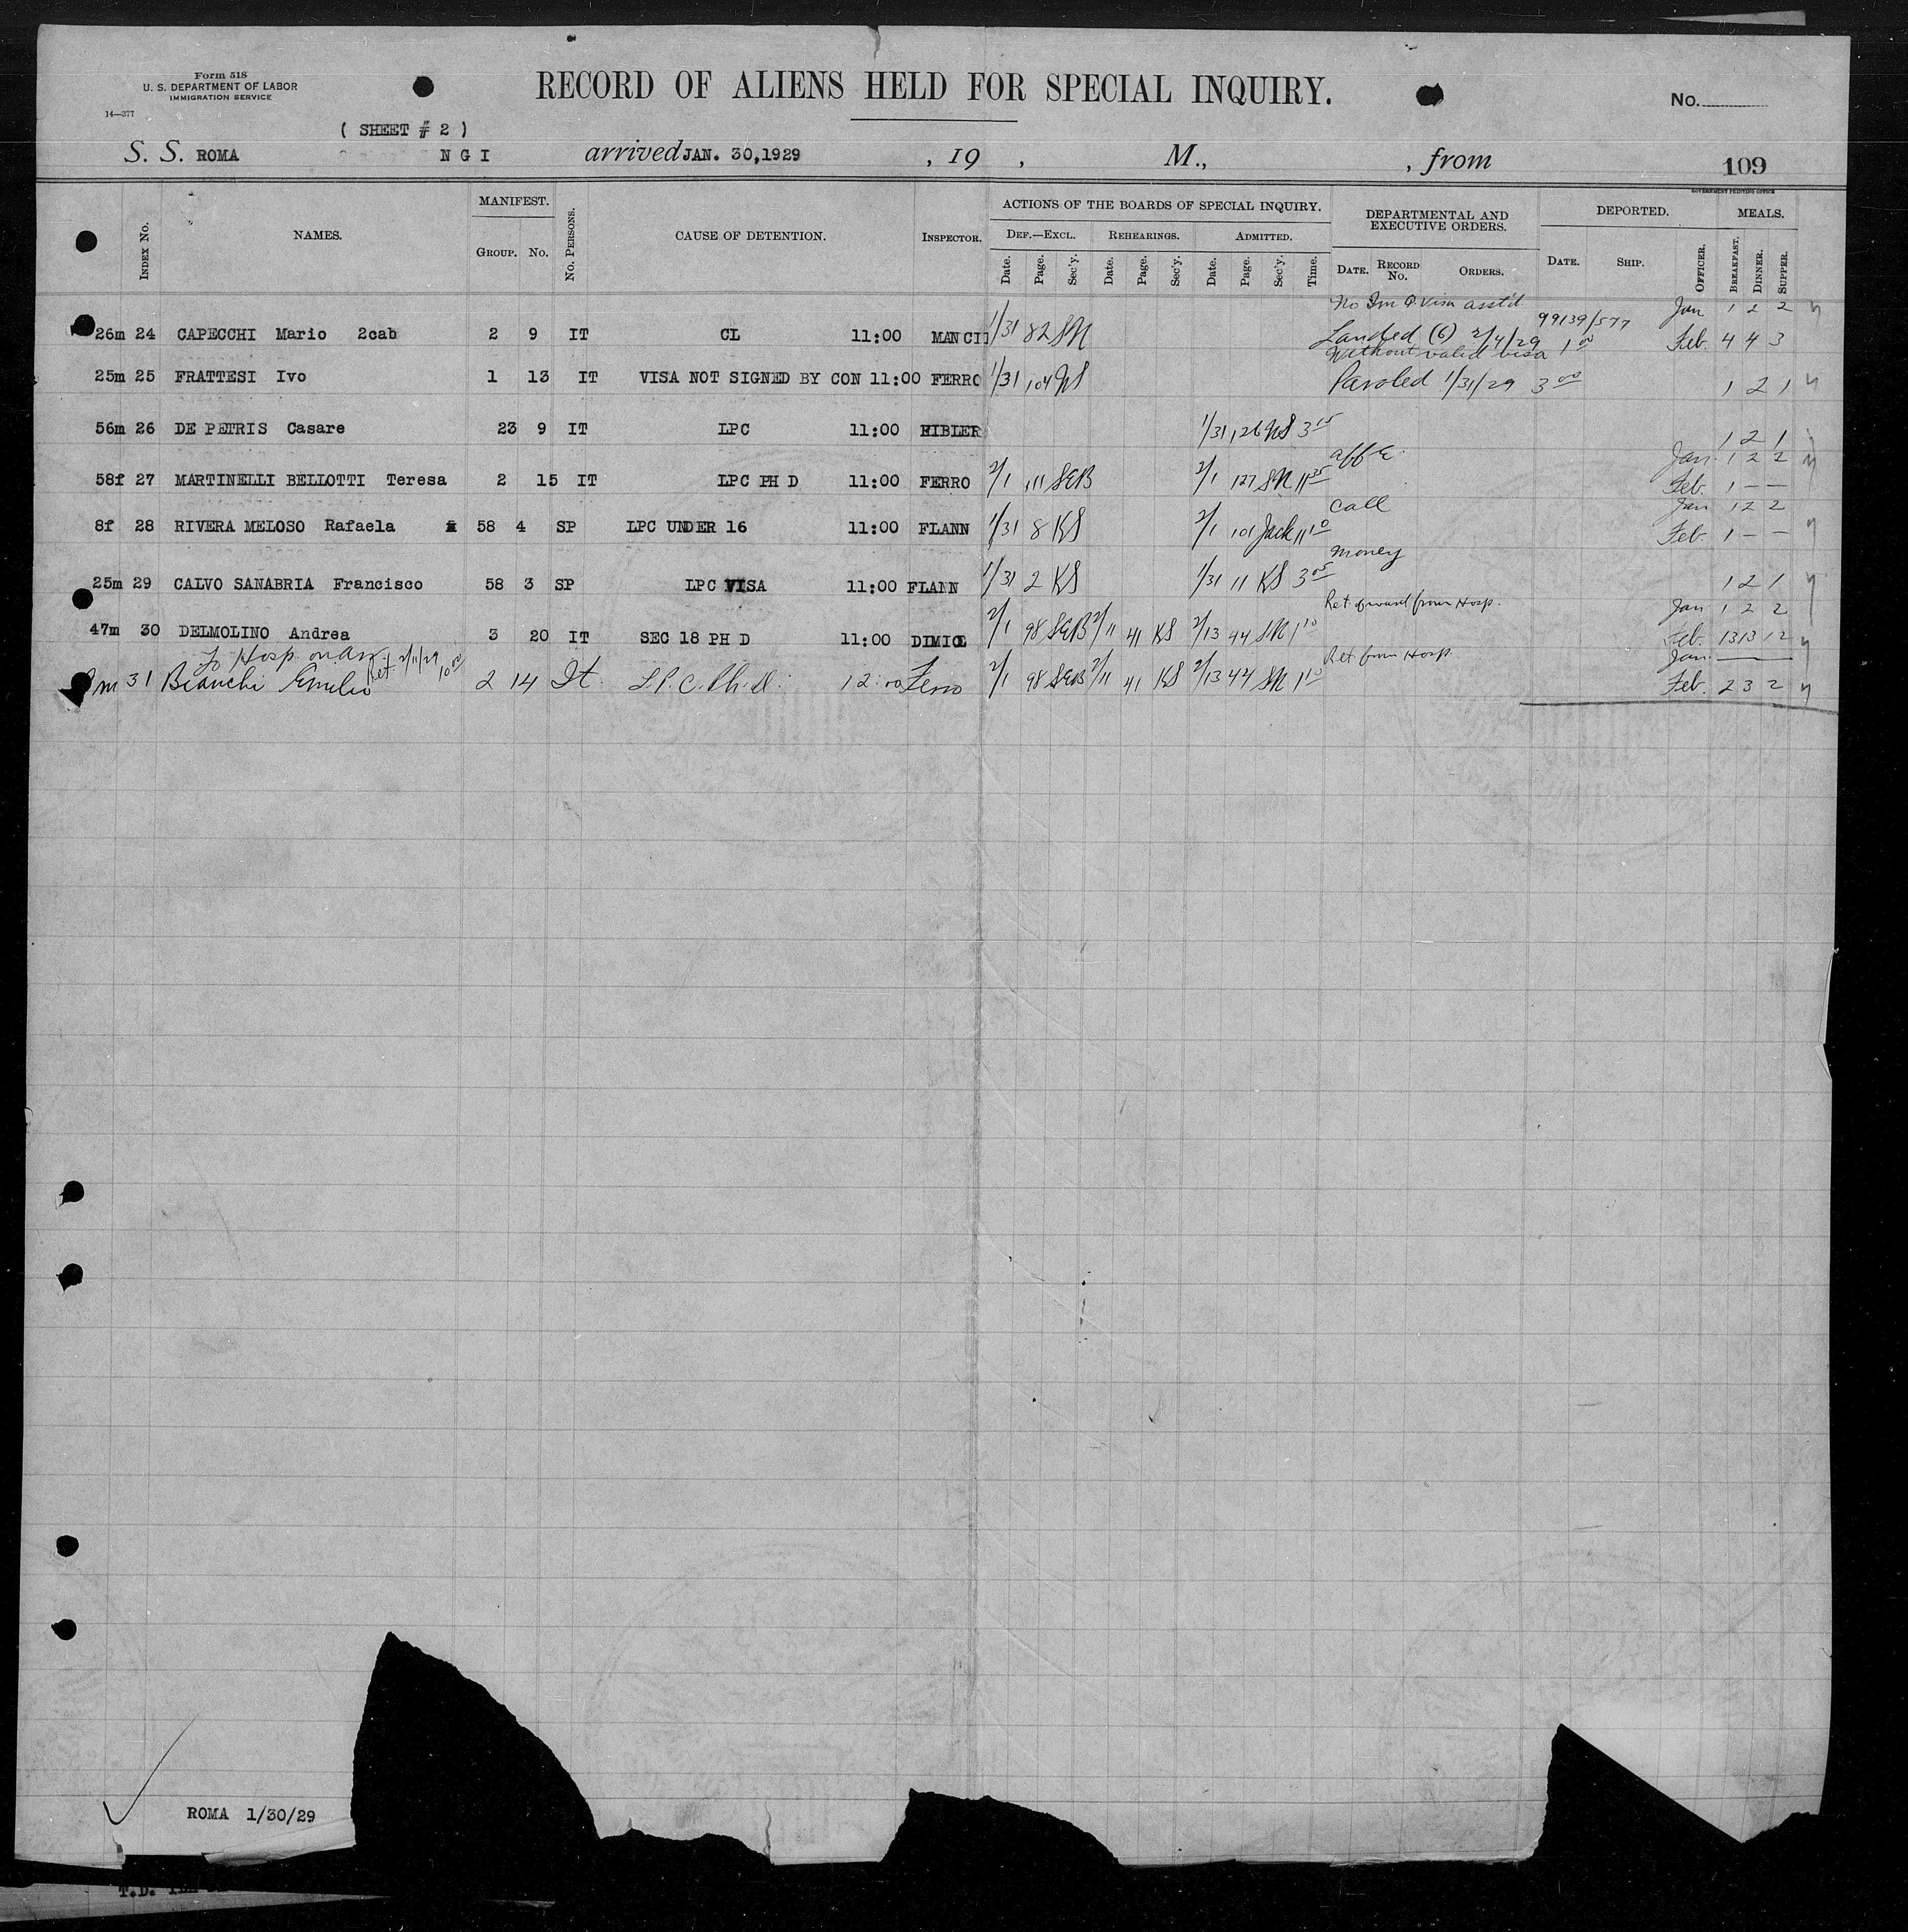 Form 518
U. S. DEPARTMENT OF LABOR
IMMIGRATION SERVICE
14—377
RECORD OF ALIENS HELD FOR SPECIAL INQUIRY.
No.
( SHEET # 2 )
S. S. ROMA N G I arrived JAN. 30,1929 , 19 , M., , from 109
GOVERNMENT PRINTING OFFICE
INDEX No. NAMES. MANIFEST. GROUP. No. No. PERSONS. CAUSE OF DETENTION. INSPECTOR. ACTIONS OF THE BOARDS OF SPECIAL INQUIRY. DEF.—EXCL. REHEARINGS. ADMITTED. DEPARTMENTAL AND EXECUTIVE ORDERS. DEPORTED. MEALS.
Date. Page. Sec'y. Date. Page. Sec'y. Date. Page. Sec'y. Time. DATE. RECORD No. ORDERS. DATE. SHIP. OFFICER. BREAKFAST. DINNER. SUPPER.
No Im Q Visa asst'd 99139/577 Jan 1 2 2
26m 24 CAPECCHI Mario 2cab 2 9 IT CL 11:00 MANCI 1/31 82 SM Landed (6) 2/4/29 1 00 Feb. 4 4 3
Without valid visa
25m 25 FRATTESI Ivo 1 13 IT VISA NOT SIGNED BY CON 11:00 FERRO 1/31 104 NS Paroled 1/31/29 3 00 1 2 1
56m 26 DE PETRIS Casare 23 9 IT LPC 11:00 HIBLER 1/31 126 NS 3 15 1 2 1
aff Jan. 1 2 2
58f 27 MARTINELLI BELLOTTI Teresa 2 15 IT LPC PH D 11:00 FERRO 2/1 111 SEB 2/1 127 SM 11 35 Feb. 1 — —
call Jan 1 2 2
8f 28 RIVERA MELOSO Rafaela 58 4 SP LPC UNDER 16 11:00 FLANN 1/31 8 KS 2/1 101 Jack 11 10 Feb. 1 — —
money
25m 29 CALVO SANABRIA Francisco 58 3 SP LPC VISA 11:00 FLANN 1/31 2 KS 1/31 11 KS 3 05 1 2 1
Ret from Hosp. Jan 1 2 2
47m 30 DELMOLINO Andrea 3 20 IT SEC 18 PH D 11:00 DIMICE 2/1 98 SEB 2/11 41 KS 2/13 44 SM 1 10 Feb. 13 13 12
To Hosp on arr Ret. 2/11/29 10 00 Ret from Hosp. Jan. —
m 31 Bianchi Emilio 2 14 It L.P.C. Ph.d. 12:00 Ferro 2/1 98 SEB 2/11 41 KS 2/13 44 SM 1 10 Feb. 2 3 2
ROMA 1/30/29
T.D.